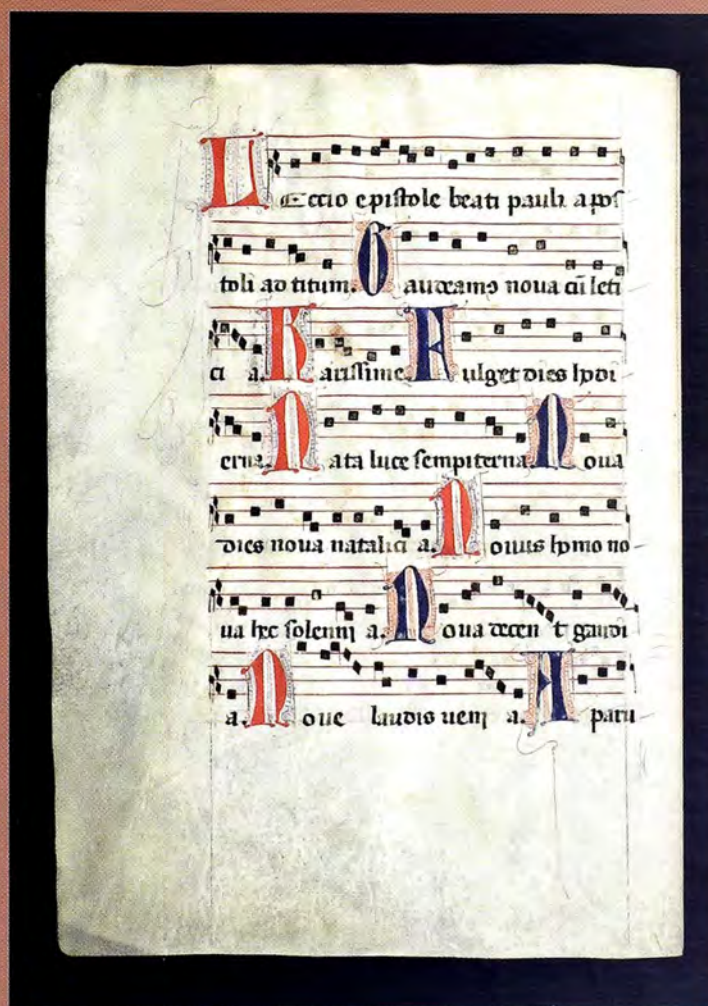 Leccio epistole beati pauli apos
toli ad titum. Gaudeamus noua cū leti
ci a. Karissime. Fulget dies hodi
erna. Nata luce sempiterna. Noua
dies noua natalici a. Nouus homo no
ua hec solenni a. Noua decen t gaudi
a. Noue laudis ueni a. A patri